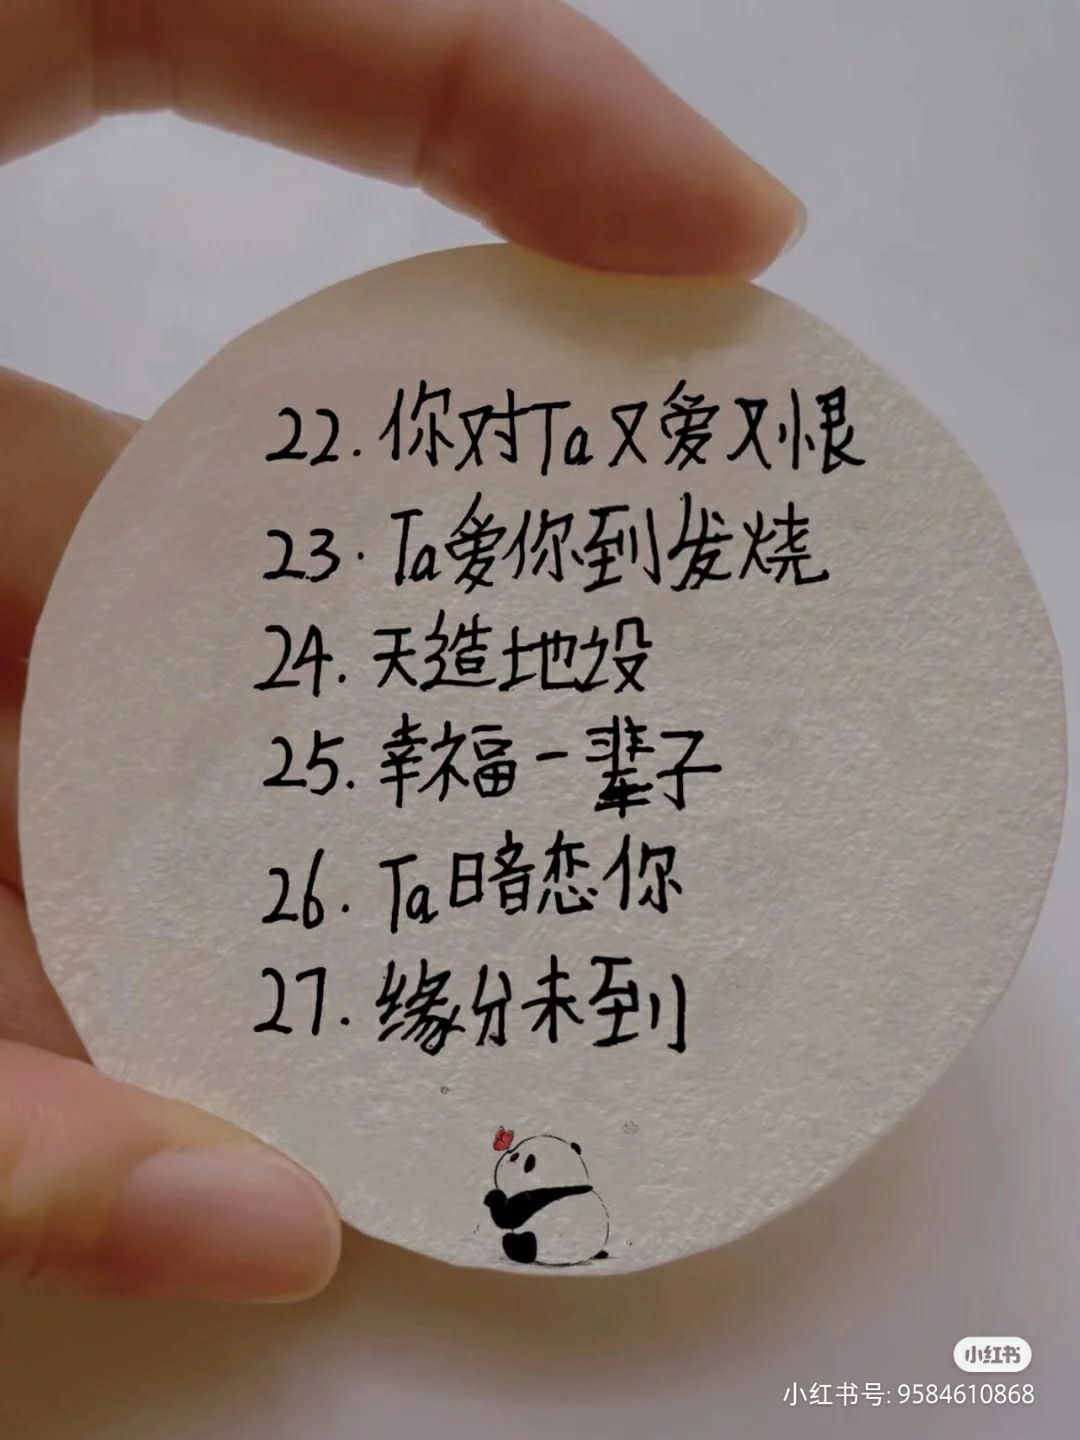 22. 你对Ta又爱又恨
23. Ta爱你到发烧
24. 天造地设
25. 幸福一辈子
26. Ta暗恋你
27. 缘分未到
小红书
小红书号: 9584610868